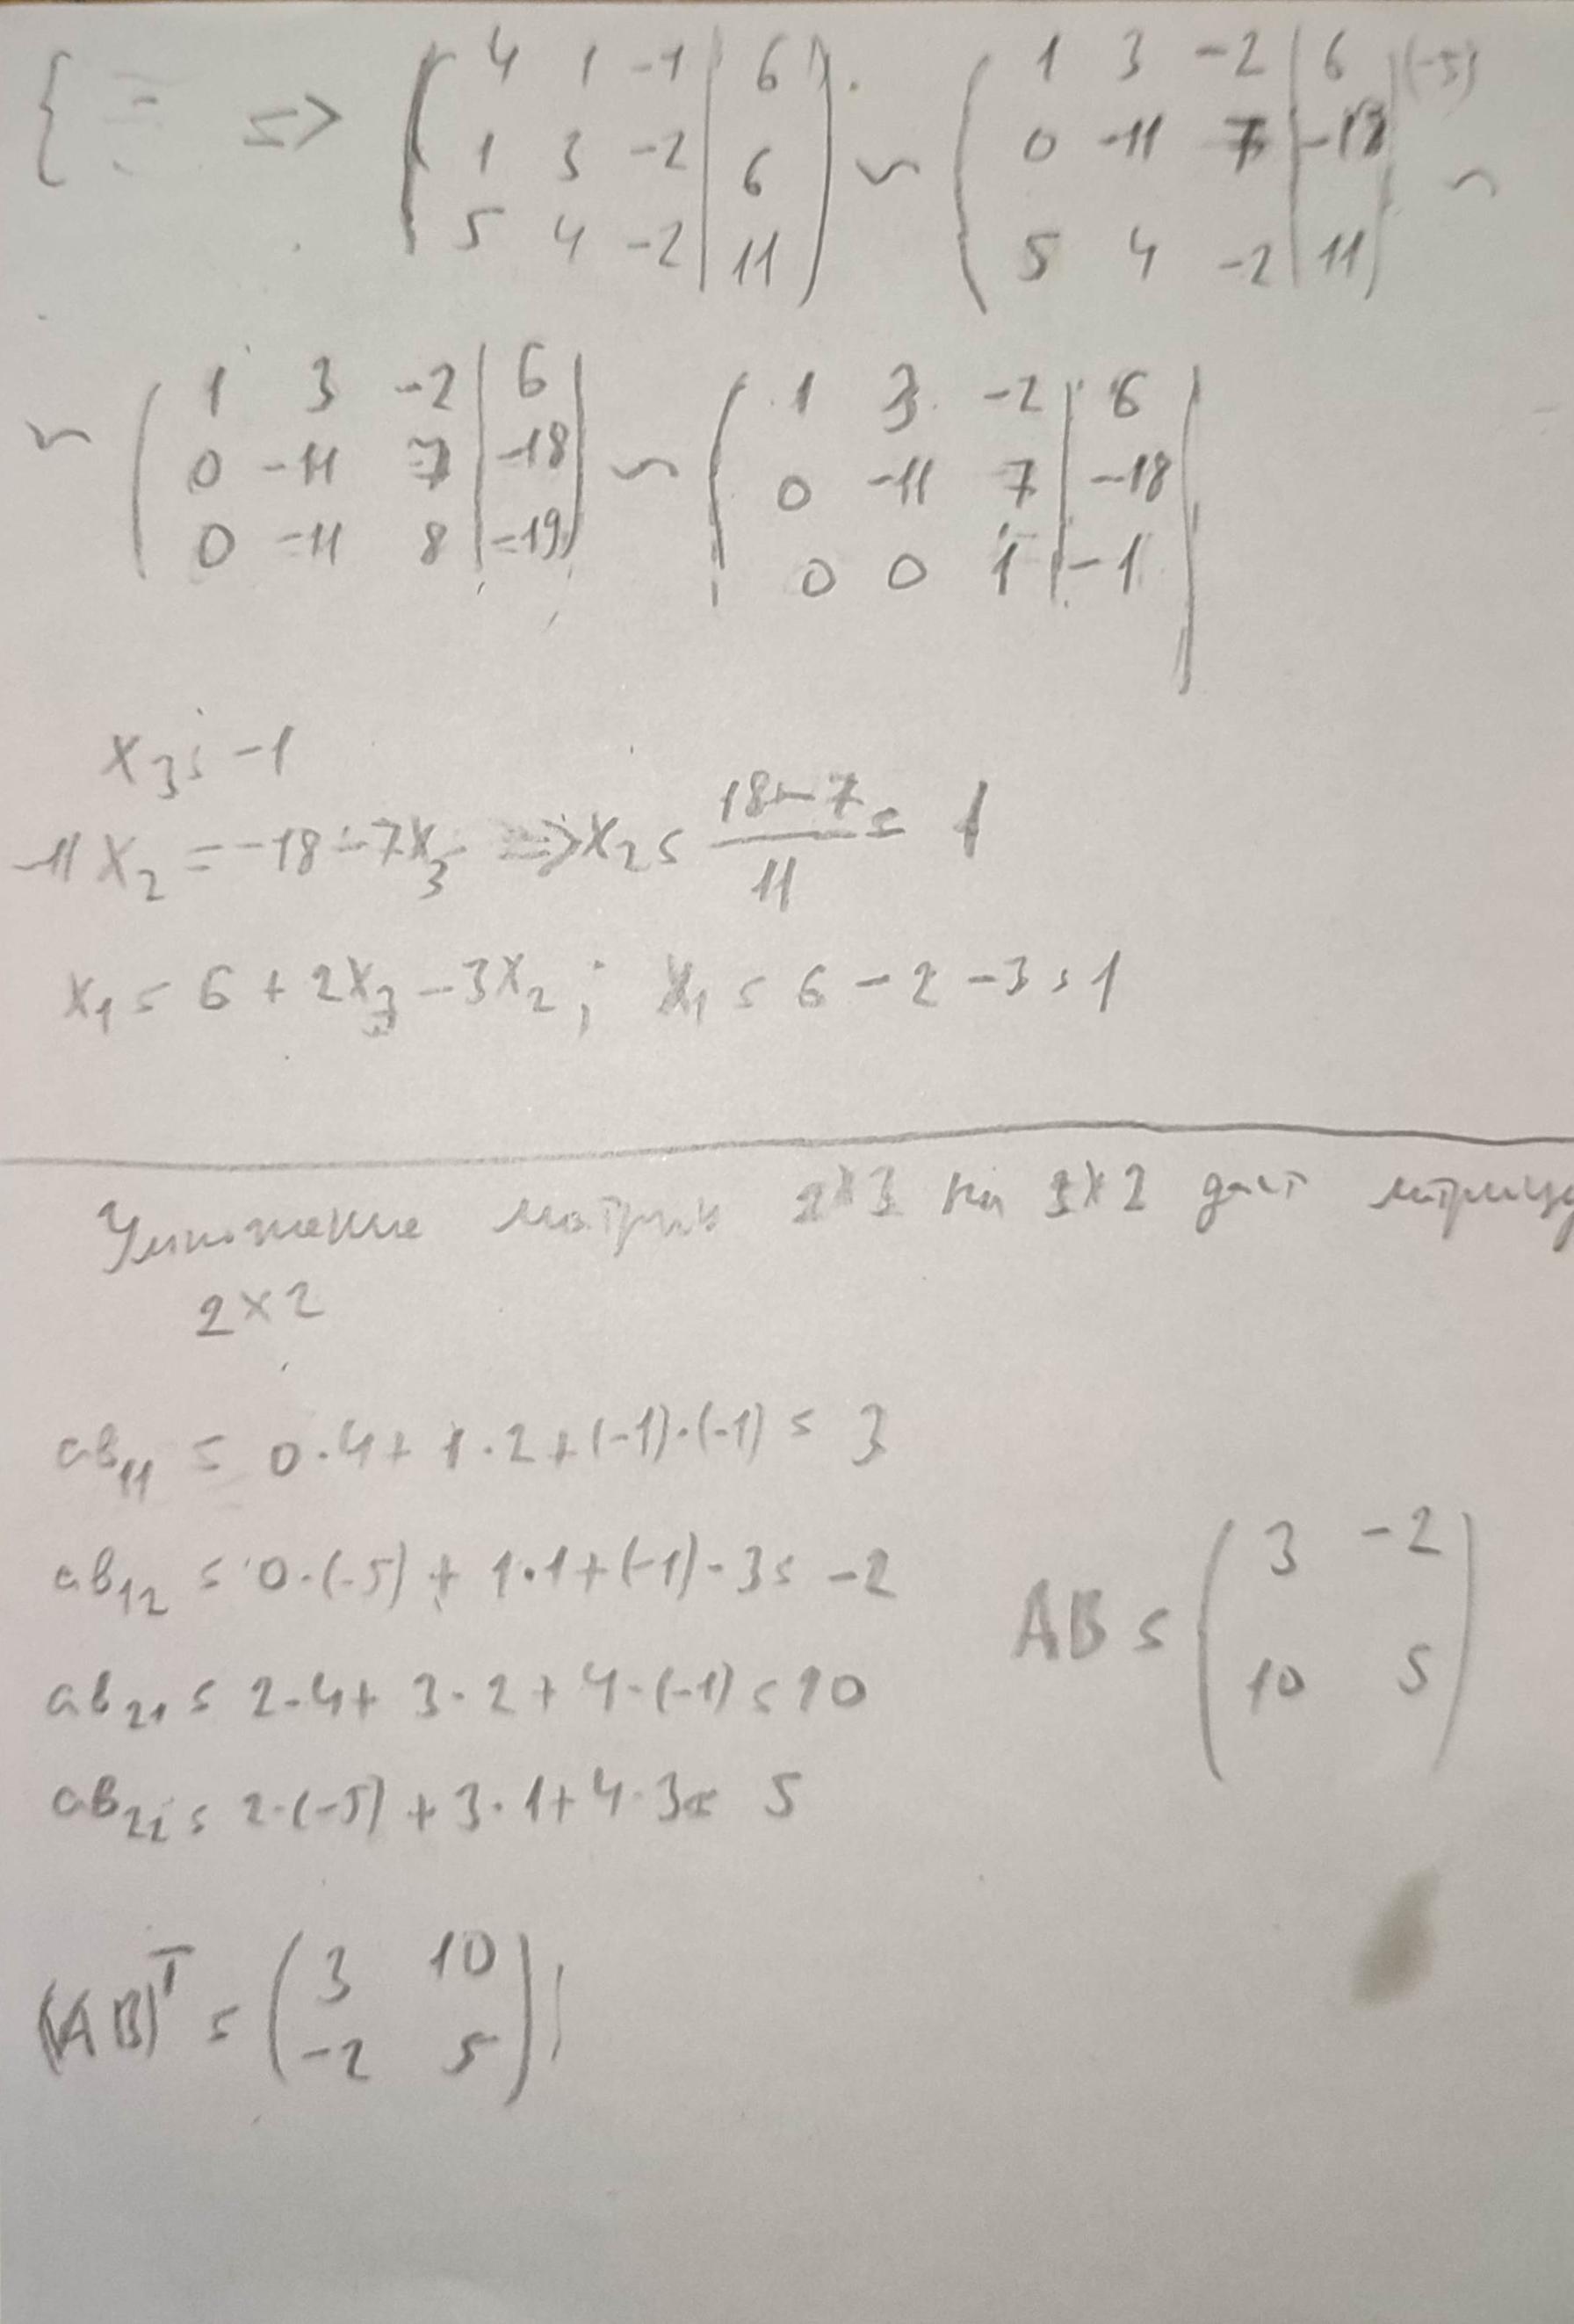 { => ( 4 1 -1 | 6 ) ~ ( 1 3 -2 | 6 ) (-5)
( 1 3 -2 | 6 ) ( 0 -11 7 | -18 ) ~
( 5 4 -2 | 11 ) ( 5 4 -2 | 11 )
~ ( 1 3 -2 | 6 ) ~ ( 1 3 -2 | 6 )
( 0 -11 7 | -18 ) ( 0 -11 7 | -18 )
( 0 -11 8 | -19 ) ( 0 0 1 | -1 )
x₃ = -1
-11x₂ = -18 - 7x₃ => x₂ = (18-7)/11 = 1
x₁ = 6 + 2x₃ - 3x₂; x₁ = 6 - 2 - 3 = 1
Умножение матриц 2×3 на 3×2 даст матрицу
2×2
ab₁₁ = 0·4 + 1·2 + (-1)·(-1) = 3
ab₁₂ = 0·(-5) + 1·1 + (-1)·3 = -2
ab₂₁ = 2·4 + 3·2 + 4·(-1) = 10
ab₂₂ = 2·(-5) + 3·1 + 4·3 = 5
AB = ( 3 -2 )
( 10 5 )
(AB)ᵀ = ( 3 10 )
( -2 5 );